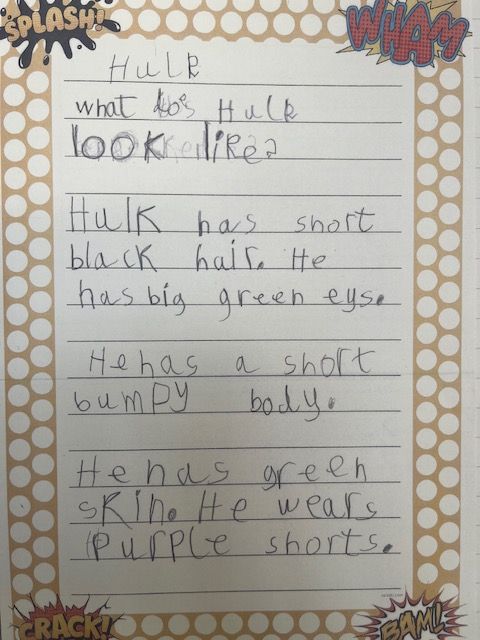 SPLASH!
WHAM
Hulk
what dos Hulk
look like?
Hulk has short
black hair. He
has big green eys.
He has a short
bumpy body.
He has green
skin. He wears
Purple shorts.
CRACK!
BAM!